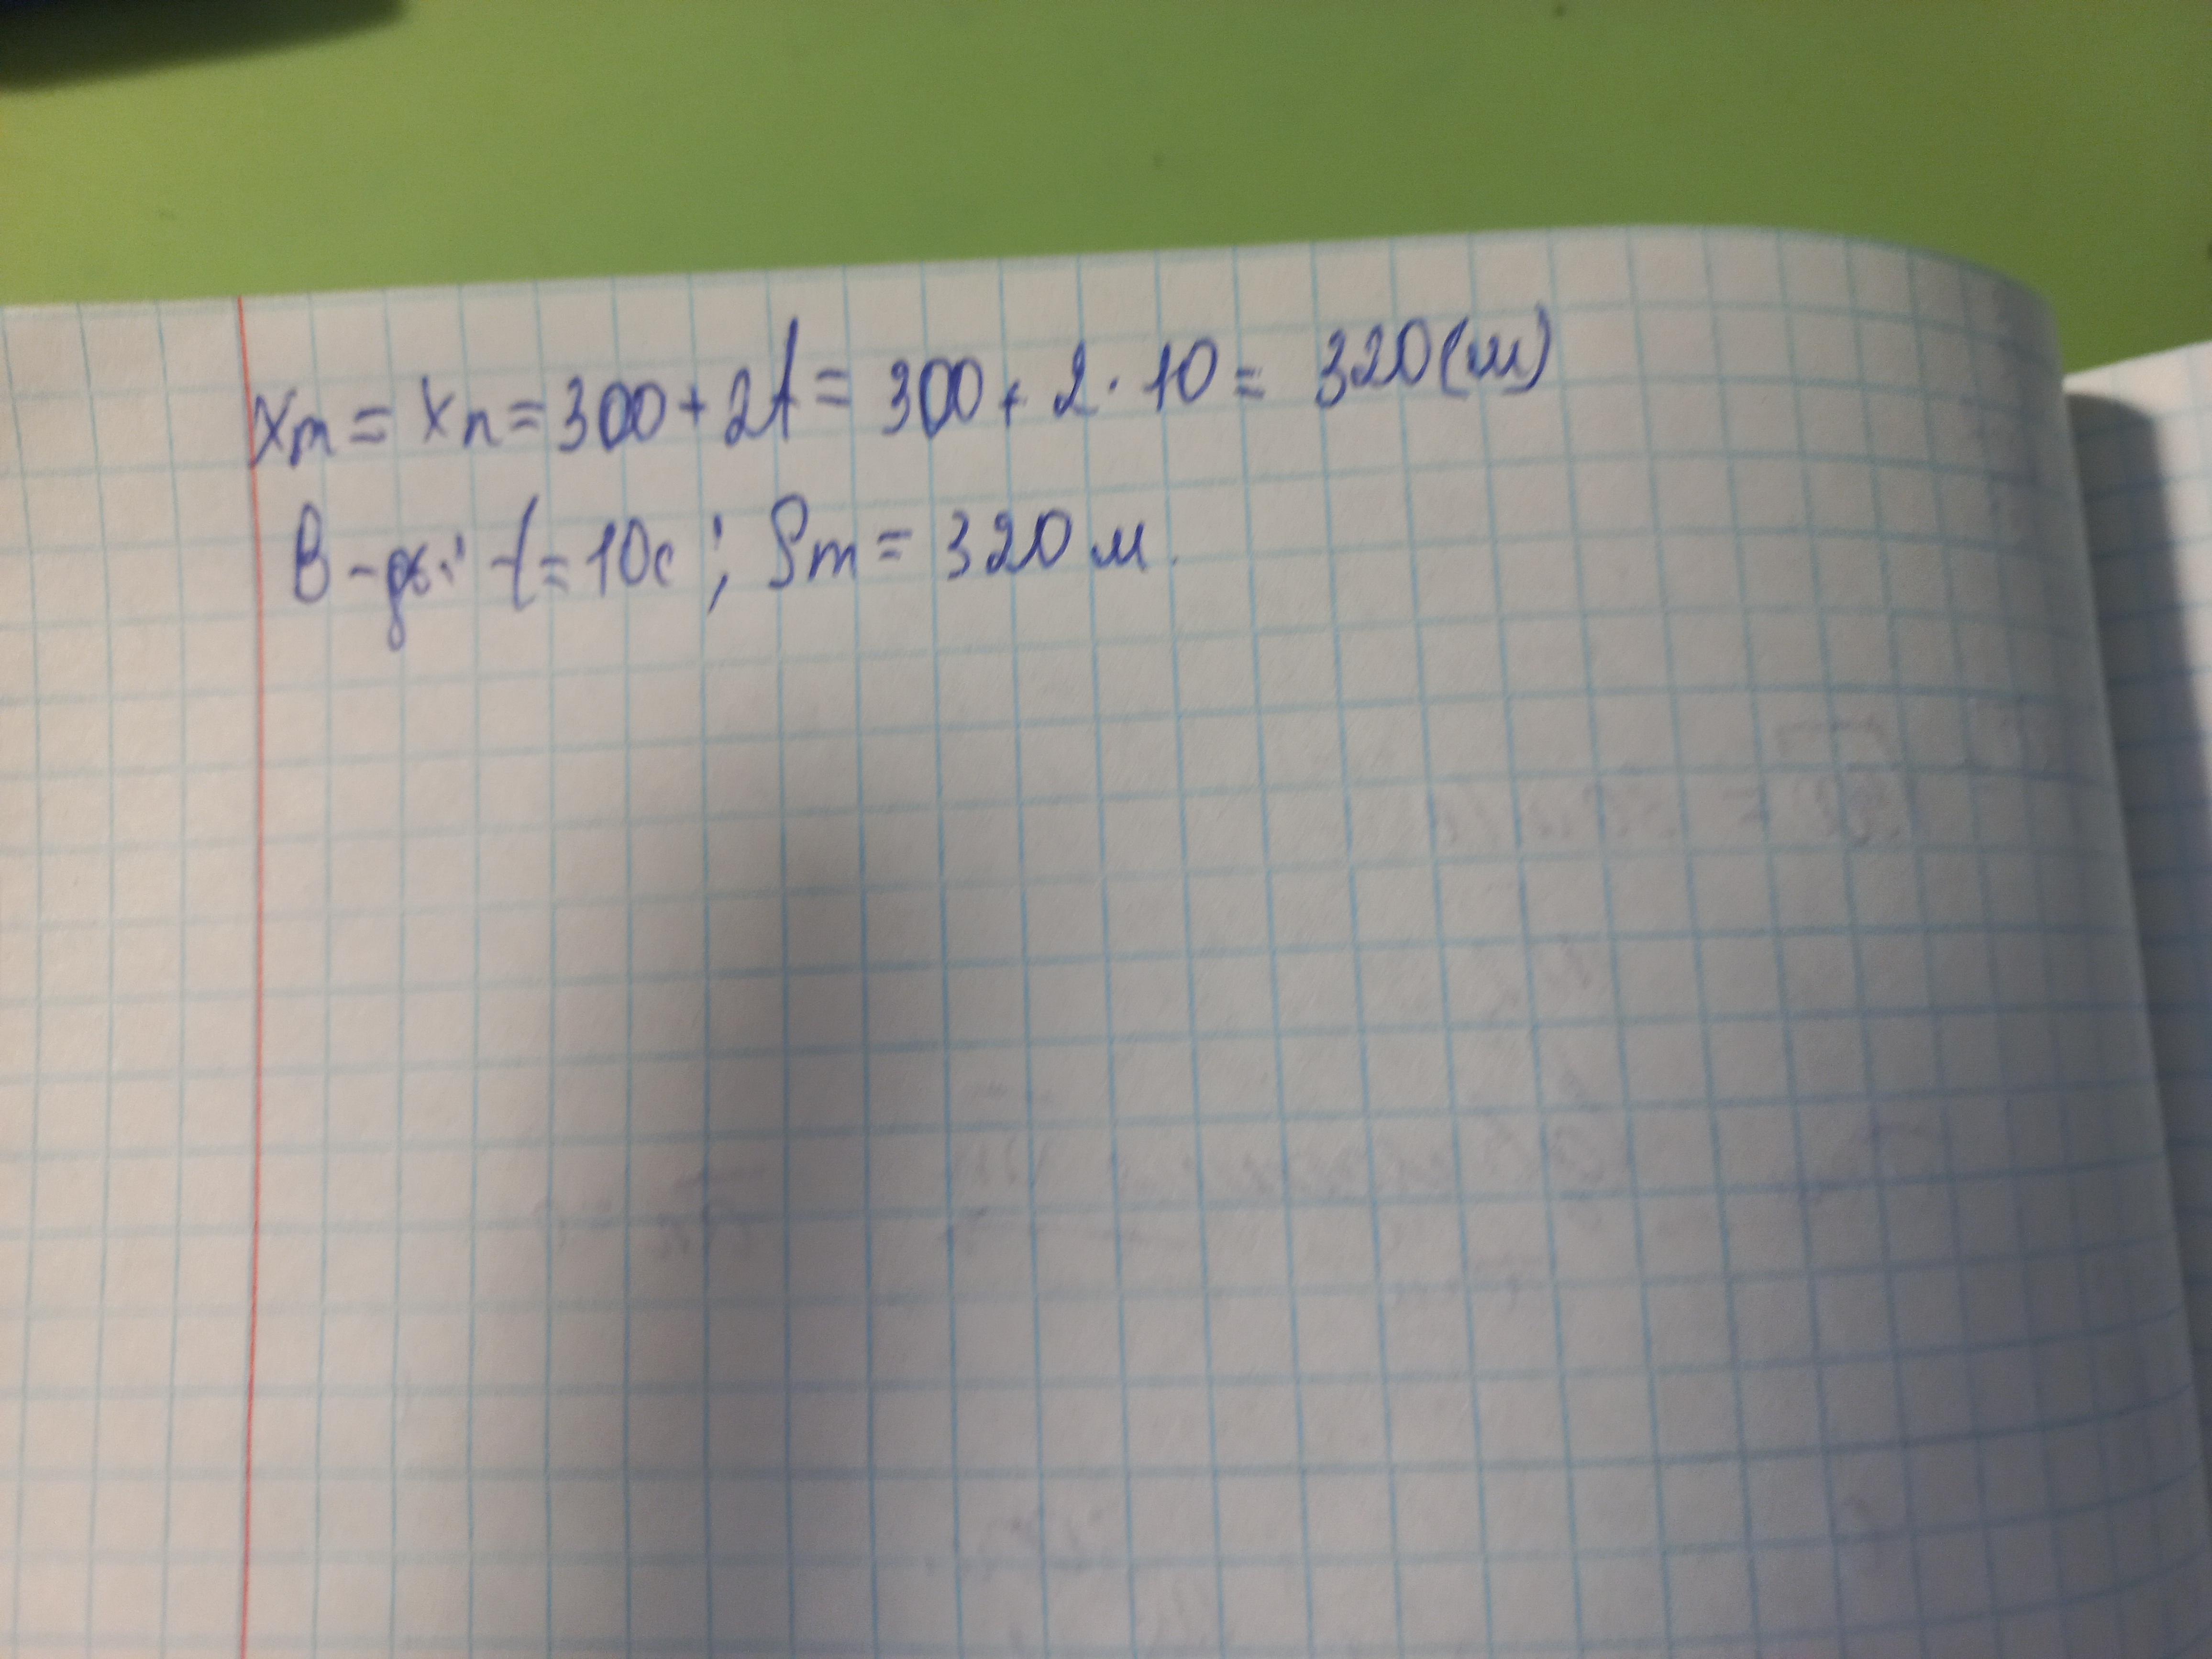 xm = xn = 300 + 2t = 300 + 2 · 10 = 320(м)
В-дь: t = 10c ; Sm = 320 м.